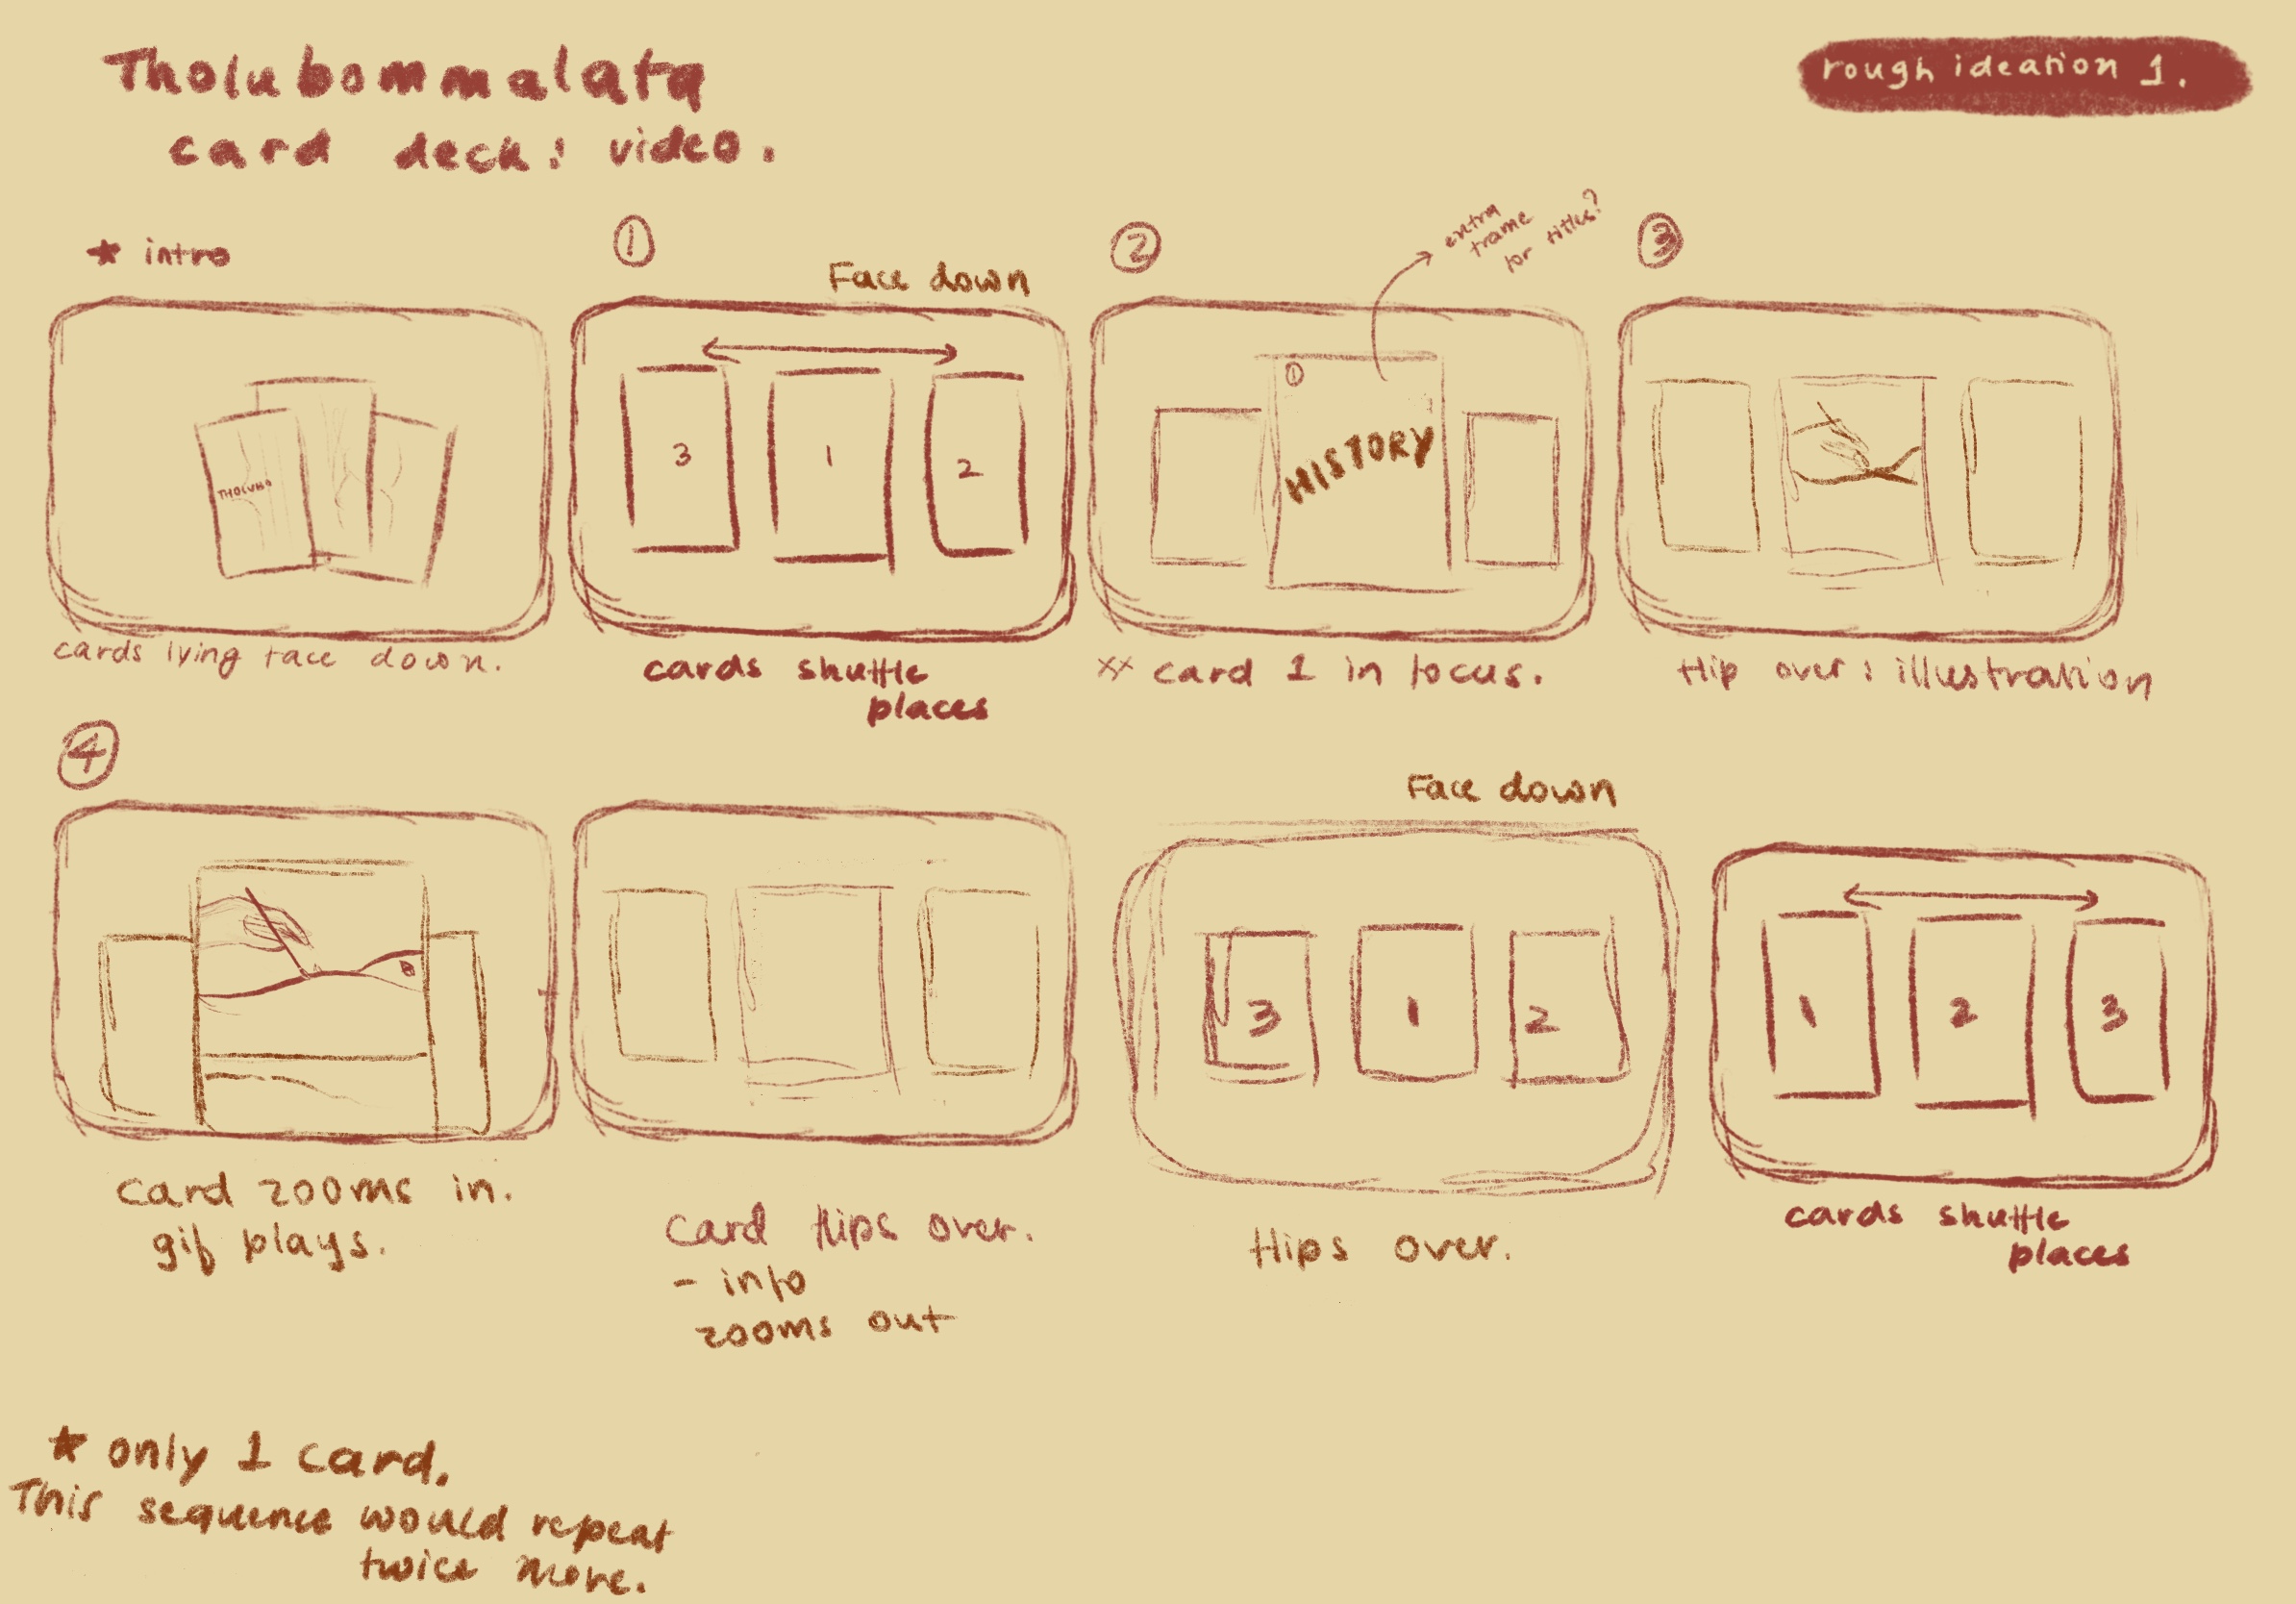 Tholubommalata
card deck: video.
rough ideation 1.
★ intro
THOLUBO
cards lying face down.
①
Face down
3 1 2
cards shuffle
places
②
extra
frame
for titles?
①
HISTORY
×× card 1 in focus.
③
flip over: illustration
④
Card zooms in.
gif plays.
Card flips over.
- info
zooms out
Face down
3 1 2
flips over.
1 2 3
cards shuffle
places
★ only 1 card.
This sequence would repeat
twice more.